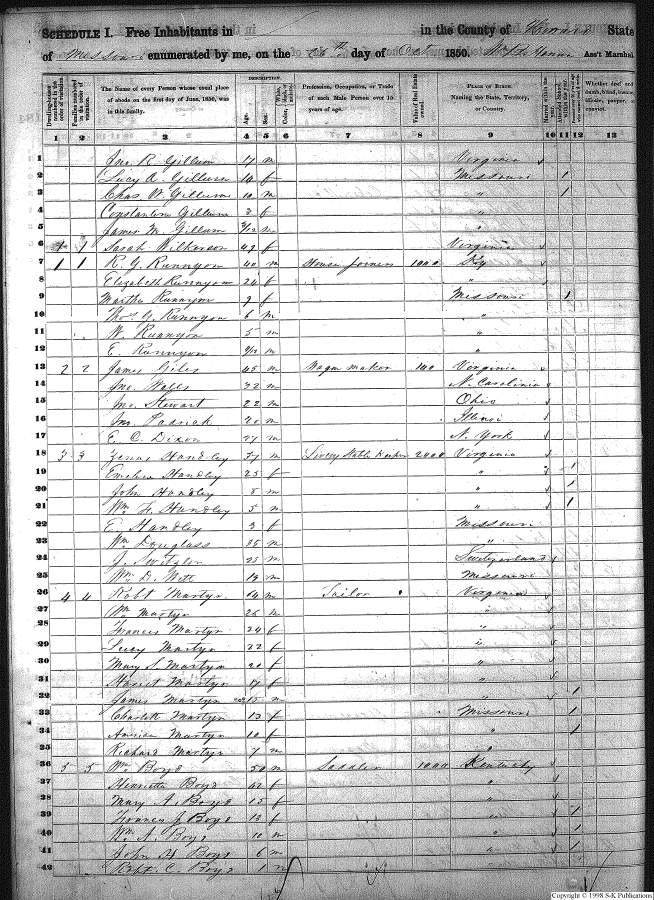 SCHEDULE I. Free Inhabitants in in the County of Howard State
of Missouri enumerated by me, on the 26th day of Oct 1850. Ass't Marshal
DESCRIPTION.
Dwelling-houses numbered in the order of visitation.
Families numbered in the order of visitation.
The Name of every Person whose usual place of abode on the first day of June, 1850, was in this family.
Age.
Sex.
White, black, or mulatto.
Profession, Occupation, or Trade of each Male Person over 15 years of age.
Value of Real Estate owned.
PLACE OF BIRTH. Naming the State, Territory, or Country.
Married within the year.
Whether deaf and dumb, blind, insane, idiotic, pauper, or convict.
1 2 3 4 5 6 7 8 9 10 11 12 13
1 Jno. R. Gillum 17 m Virginia
2 Lucy A. Gillum 14 f Missouri 1
3 Chas. W. Gillum 10 m " 1
4 Constantine Gillum 3 f "
5 James M. Gillum m "
6 1 1 Sarah Wilkerson 49 f Virginia
7 1 1 R. G. Runnyon 40 m House Joiner 1000 Ky
8 Elizabeth Runnyon 24 f "
9 Martha Runnyon 9 f Missouri 1
10 Thos. G. Runnyon 6 m "
11 W. Runnyon 5 m "
12 E. Runnyon m "
13 2 2 James Giles 45 m Wagon maker 100 Virginia
14 Jno. Walls 32 m N. Carolinia
15 Jno. Stewart 22 m Ohio
16 Jno. 20 m Illinoi
17 E. C. Dixon 27 m N. York
18 3 3 Handley 37 m Livery Stable Keeper 2000 Virginia
19 Emeline Handley 25 f " 1
20 John Handley 8 m " 1
21 Wm. H. Handley 5 m " 1
22 E. Handley 3 f Missouri
23 Wm. Douglass 36 m "
24 J. Switzler 23 m Switzerland
25 Wm. D. Witt 19 m Missouri
26 4 4 Robt Martyn 64 m Tailor Virginia
27 Wm. Martyn 26 m "
28 Frances Martyn 24 f "
29 Lucy Martyn 22 f "
30 Mary S. Martyn 20 f "
31 Hariet Martyn 17 f "
32 James Martyn 15 m " 1
33 Charlott Martyn 13 f Missouri 1
34 Martyn 10 f " 1
35 Richard Martyn 7 m "
36 5 5 Wm Boyd 50 m Saddler 1000 Kentucky
37 Henrietta Boyd 42 f "
38 Mary A. Boyd 15 f "
39 Frances J Boyd 13 f " 1
40 Wm. A. Boyd 10 m " 1
41 John H Boyd 6 m " 1
42 Robt. C. Boyd 1 m "
Copyright © 1998 S-K Publications